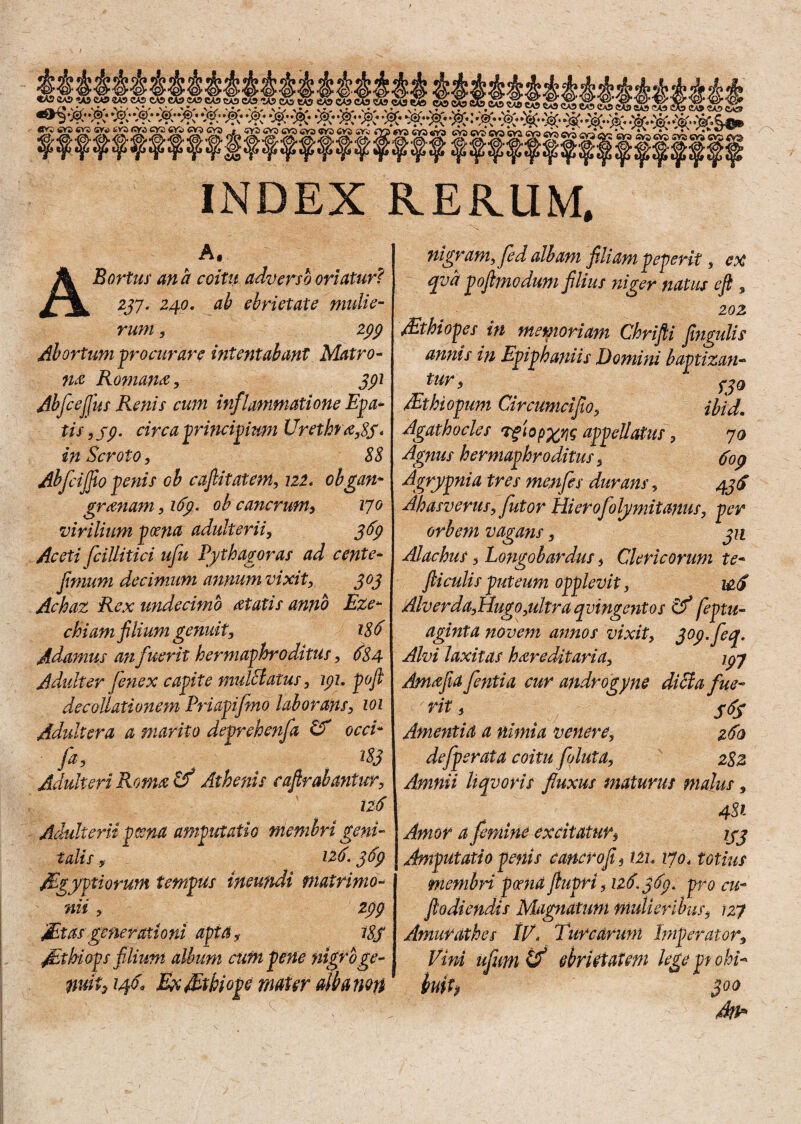 INDEX RERUM.
A.
ABortus an à coitu adverso oriatur?
237. 240. ab ebrietate mulie-
rum, 299
Abortum procurare intentabant Matro-
næ Romanæ, 391
Abſceſſus Renis cum inflammatione Epa-
tis, 59. circa principium Urethræ, 85.
in Scroto, 88
Abſciſſio penis ob caſtitatem, 122. ob gan-
grænam, 169. ob cancrum, 170
virilium pœna adulterii, 369
Aceti ſcillitici uſu Pythagoras ad cente-
ſimum decimum annum vixit, 303
Achaz Rex undecimò ætatis annò Eze-
chiam filium genuit, 186
Adamus an fuerit hermaphroditus, 684
Adulter ſenex capite mulctatus, 191. poſt
decollationem Priapiſmo laborans, 101
Adultera a marito deprehenſa & occi-
ſa, 183
Adulteri Romæ & Athenis caſtrabantur,
126
Adulterii pœna amputatio membri geni-
talis, 126. 369
Ægyptiorum tempus ineundi matrimo-
nii, 299
Ætas generationi apta, 185
Æthiops filium album cum pene nigrò ge-
nuit, 146. Ex Æthiope mater alba non
nigram, ſed albam filiam peperit, ex
qvâ poſtmodum filius niger natus eſt,
202
Æthiopes in memoriam Chriſti ſingulis
annis in Epiphaniis Domini baptizan-
tur, 530
Æthiopum Circumciſio, ibid.
Agathocles τρίορχης appellatus, 70
Agnus hermaphroditus, 609
Agrypnia tres menſes durans, 436
Ahasverus, ſutor Hieroſolymitanus, per
orbem vagans, 311
Alachus, Longobardus, Clericorum te-
ſticulis puteum opplevit, 126
Alverda, Hugo, ultra qvingentos & ſeptu-
aginta novem annos vixit, 309. ſeq.
Alvi laxitas hæreditaria, 197
Amæſia ſentia cur androgyne dicta fue-
rit, 565
Amentiâ a nimia venere, 260
deſperata coitu ſoluta, 282
Amnii liqvoris fluxus maturus malus,
481
Amor a femine excitatur, 153
Amputatio penis cancroſi, 121. 170. totius
membri pœna ſtupri, 126. 369. pro cu-
ſtodiendis Magnatum mulieribus, 127
Amurathes IV. Turcarum Imperator,
Vini uſum & ebrietatem lege prohi-
buit, 300
An-